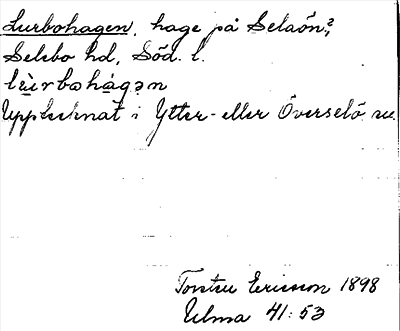 Lurbohagen, hage på Selaön,?
Selebo hd, Söd. l.
lùrbohágən
Upptecknat i Ytter- eller Överselö sn.
Torsten Ericsson 1898
Ulma 41:53